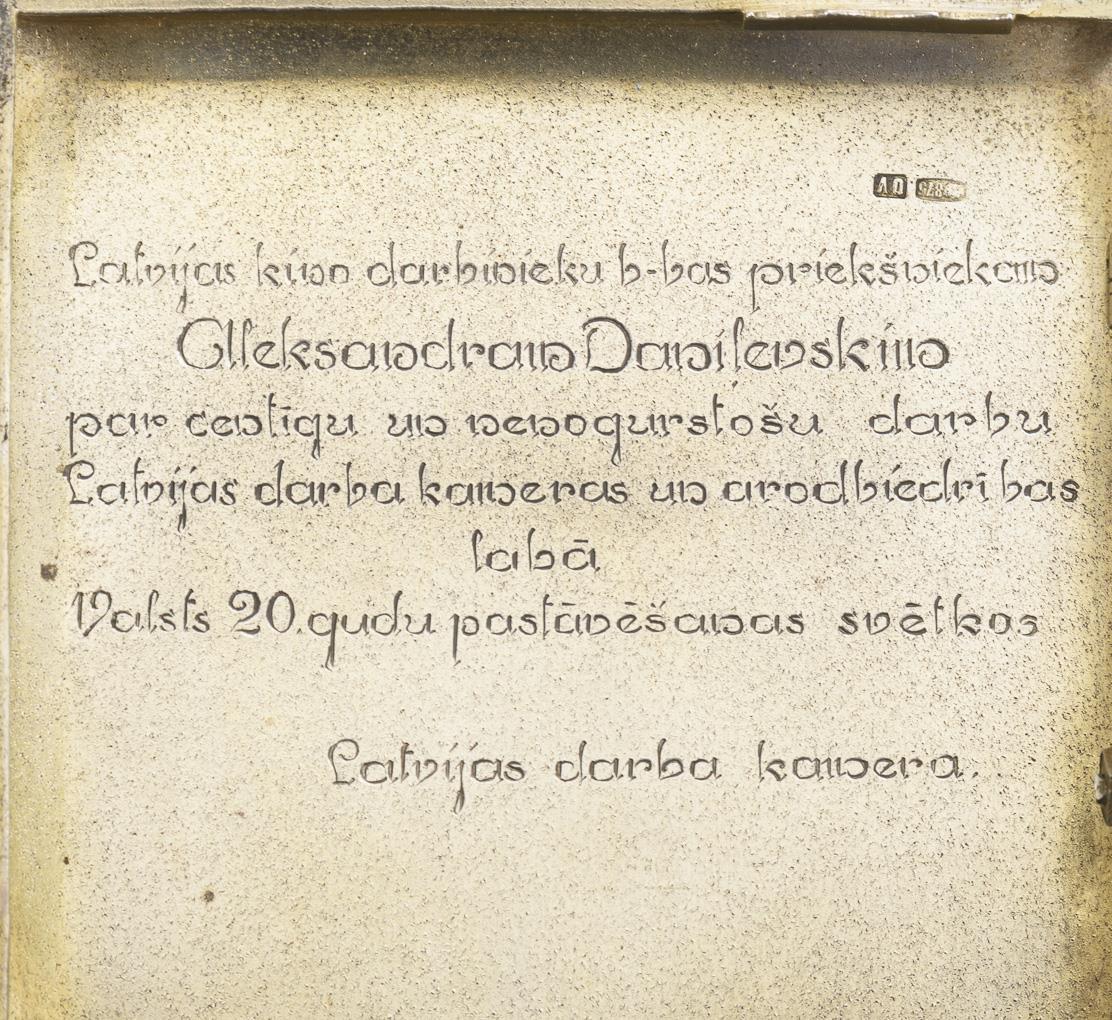 875
Latvijas kino darbinieku b-bas priekšniekam
Aleksandram Danilevskim
par centīgu un nenogurstošu darbu
Latvijas darba kameras un arodbiedrības
labā
Valsts 20.gadu pastāvēšanas svētkos
Latvijas darba kamera.